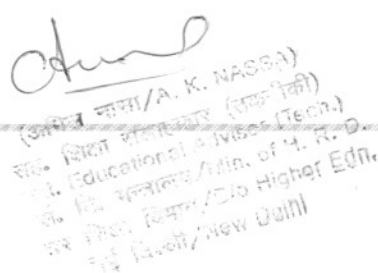 (अनिल नासा/A. K. NASSA)
सह. शिक्षा सलाहकार (तकनीकी)
Educational Adviser (Tech.)
/Min. of H. R. D.
उच्च शिक्षा विभाग/D/o Higher Edn.
नई दिल्ली/New Delhi